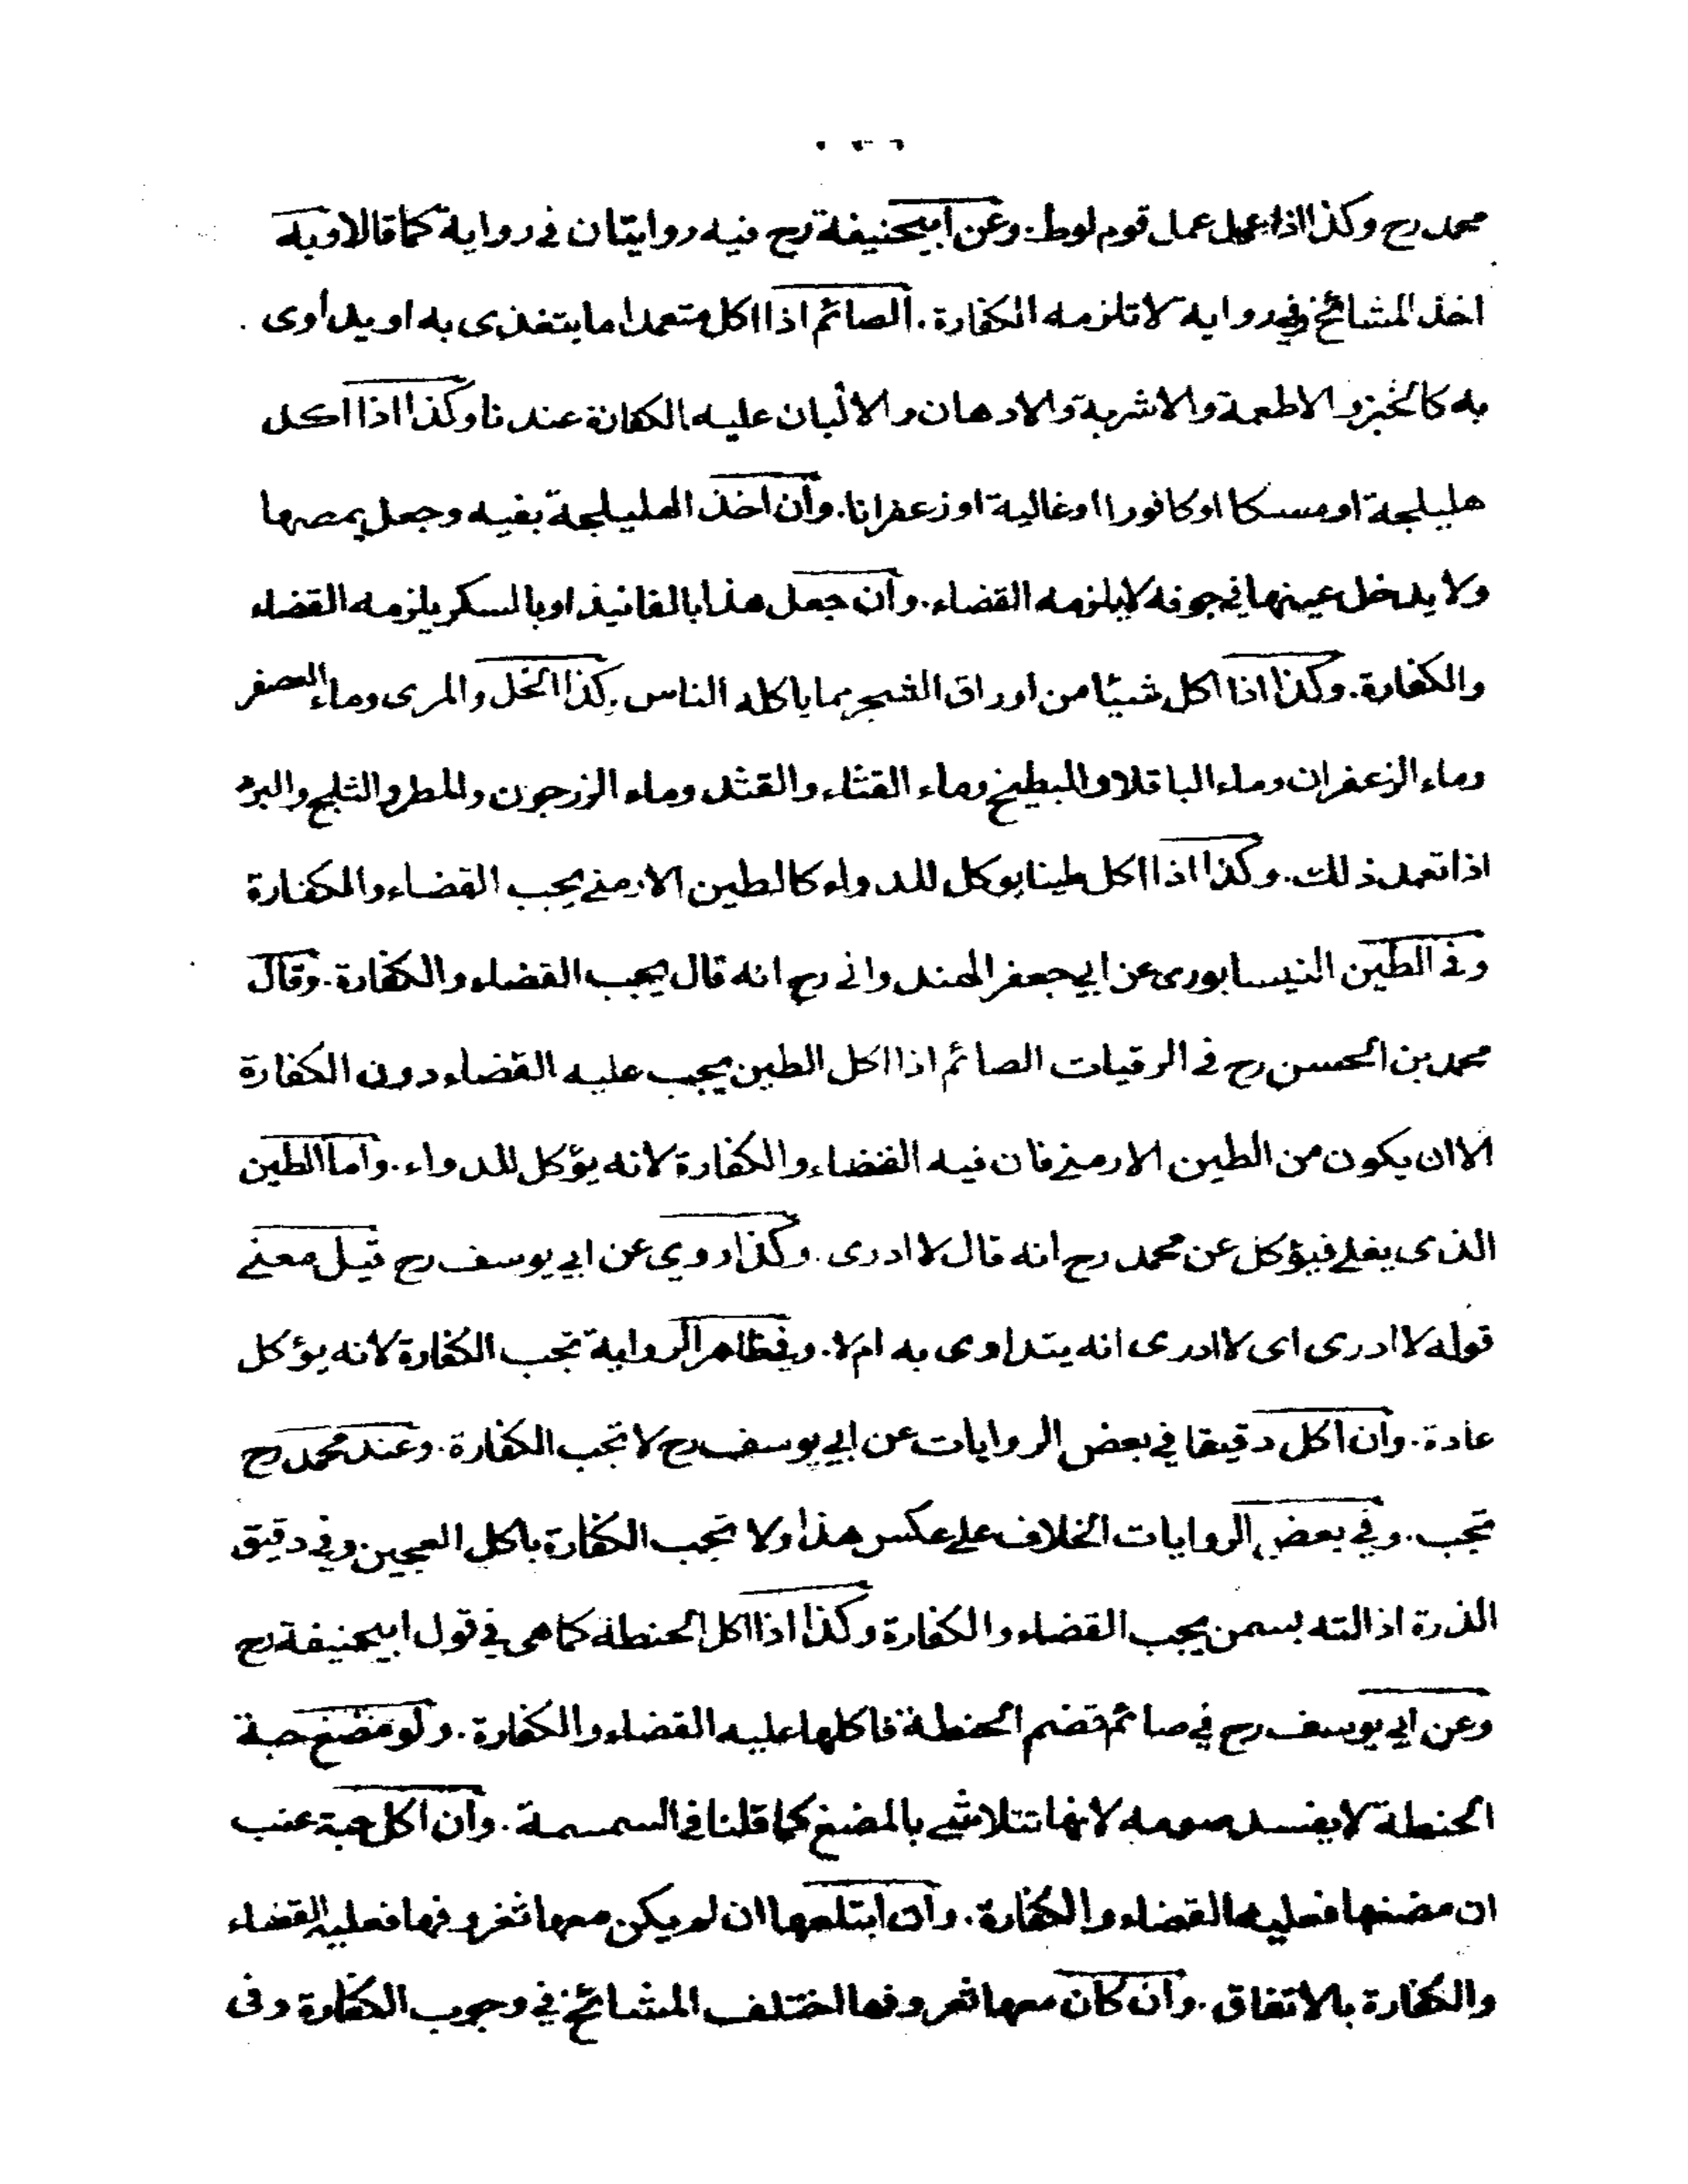 محمد رح وكذا اذا عمل عمل قوم لوط. وعن ابيحنيفة رح فيه روايتان في رواية كما قالا وبه
اخذ المشائخ وفي رواية لا تلزمه الكفارة. الصائم اذا اكل متعمدا ما يتغذى به او يداوى
به كالخبز والاطعمة والاشربة والادهان والالبان عليه الكفارة عندنا وكذا اذا اكل
هليلجة او مسكا او كافورا او غالية او زعفرانا. وان اخذ الهليلجة بفيه وجعل يمصها
ولا يدخل عينها في جوفه لا يلزمه القضاء. وان جعل هذا بالفانيذ او بالسكر يلزمه القضاء
والكفارة. وكذا اذا اكل شيئا من اوراق الشجر مما ياكله الناس وكذا الخل والمرى وماء العصفر
وماء الزعفران وماء الباقلا والبطيخ وماء القثاء والقثد وماء الزرجون والمطر والثلج والبرد
اذا تعمد ذلك. وكذا اذا اكل طينا يوكل للدواء كالطين الارمني يجب القضاء والكفارة
وفي الطين النيسابورى عن ابي جعفر الهندوانى رح انه قال يجب القضاء والكفارة. وقال
محمد بن الحسن رح فى الرقيات الصائم اذا اكل الطين يجب عليه القضاء دون الكفارة
الا ان يكون من الطين الارمني فان فيه القضاء والكفارة لانه يؤكل للدواء. واما الطين
الذى يغلى فيؤكل عن محمد رح انه قال لا ادرى. وكذا روي عن ابي يوسف رح قيل معنى
قوله لا ادرى اى لا ادرى انه يتداوى به ام لا. وفي ظاهر الرواية تجب الكفارة لانه يؤكل
عادة. وان اكل دقيقا في بعض الروايات عن ابي يوسف رح لا تجب الكفارة. وعند محمد رح
تجب. وفي بعض الروايات الخلاف على عكس هذا ولا تجب الكفارة باكل العجين وفي دقيق
الذرة اذا لته بسمن يجب القضاء والكفارة وكذا اذا اكل الحنطة كما هى في قول ابيحنيفة رح
وعن ابي يوسف رح في صائم قضم الحنطة فاكلها عليه القضاء والكفارة. ولو مضغ حبة
الحنطة لا يفسد صومه لانها تتلاشى بالمضغ كما قلنا في السمسمة. وان اكل حبة عنب
ان مضغها فعليه القضاء والكفارة. وان ابتلعها ان لم يكن معها ثفروقها فعليه القضاء
والكفارة بالاتفاق. وان كان معها ثفروقها اختلف المشائخ في وجوب الكفارة وفى